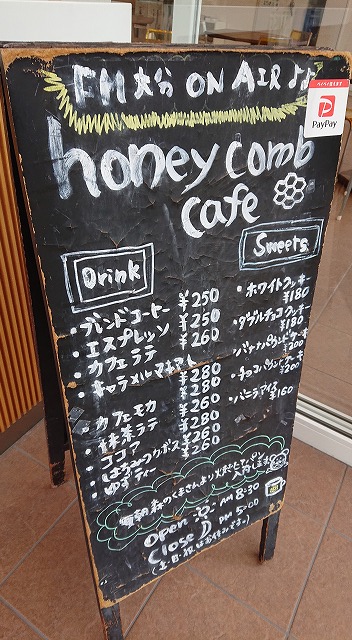 FM大分 ON AIR♪♪
ペイペイ使えます
PayPay
honey comb
cafe
Drink
・ブレンドコーヒー ¥250
・エスプレッソ ¥250
・カフェラテ ¥260
・キャラメルマキアート ¥280
・カフェモカ ¥280
・抹茶ラテ ¥280
・ココア ¥260
・はちみつカボス ¥260
・ゆずティー ¥260
Sweets
・ホワイトクッキー ¥180
・ダブルチョコクッキー ¥180
・バナナパウンドケーキ ¥200
・チョコパウンドケーキ ¥200
・バニラアイス ¥160
森のくまさんより
入荷します
open AM 8:30
Close PM 5:00
(土・日・祝はお休みです。)